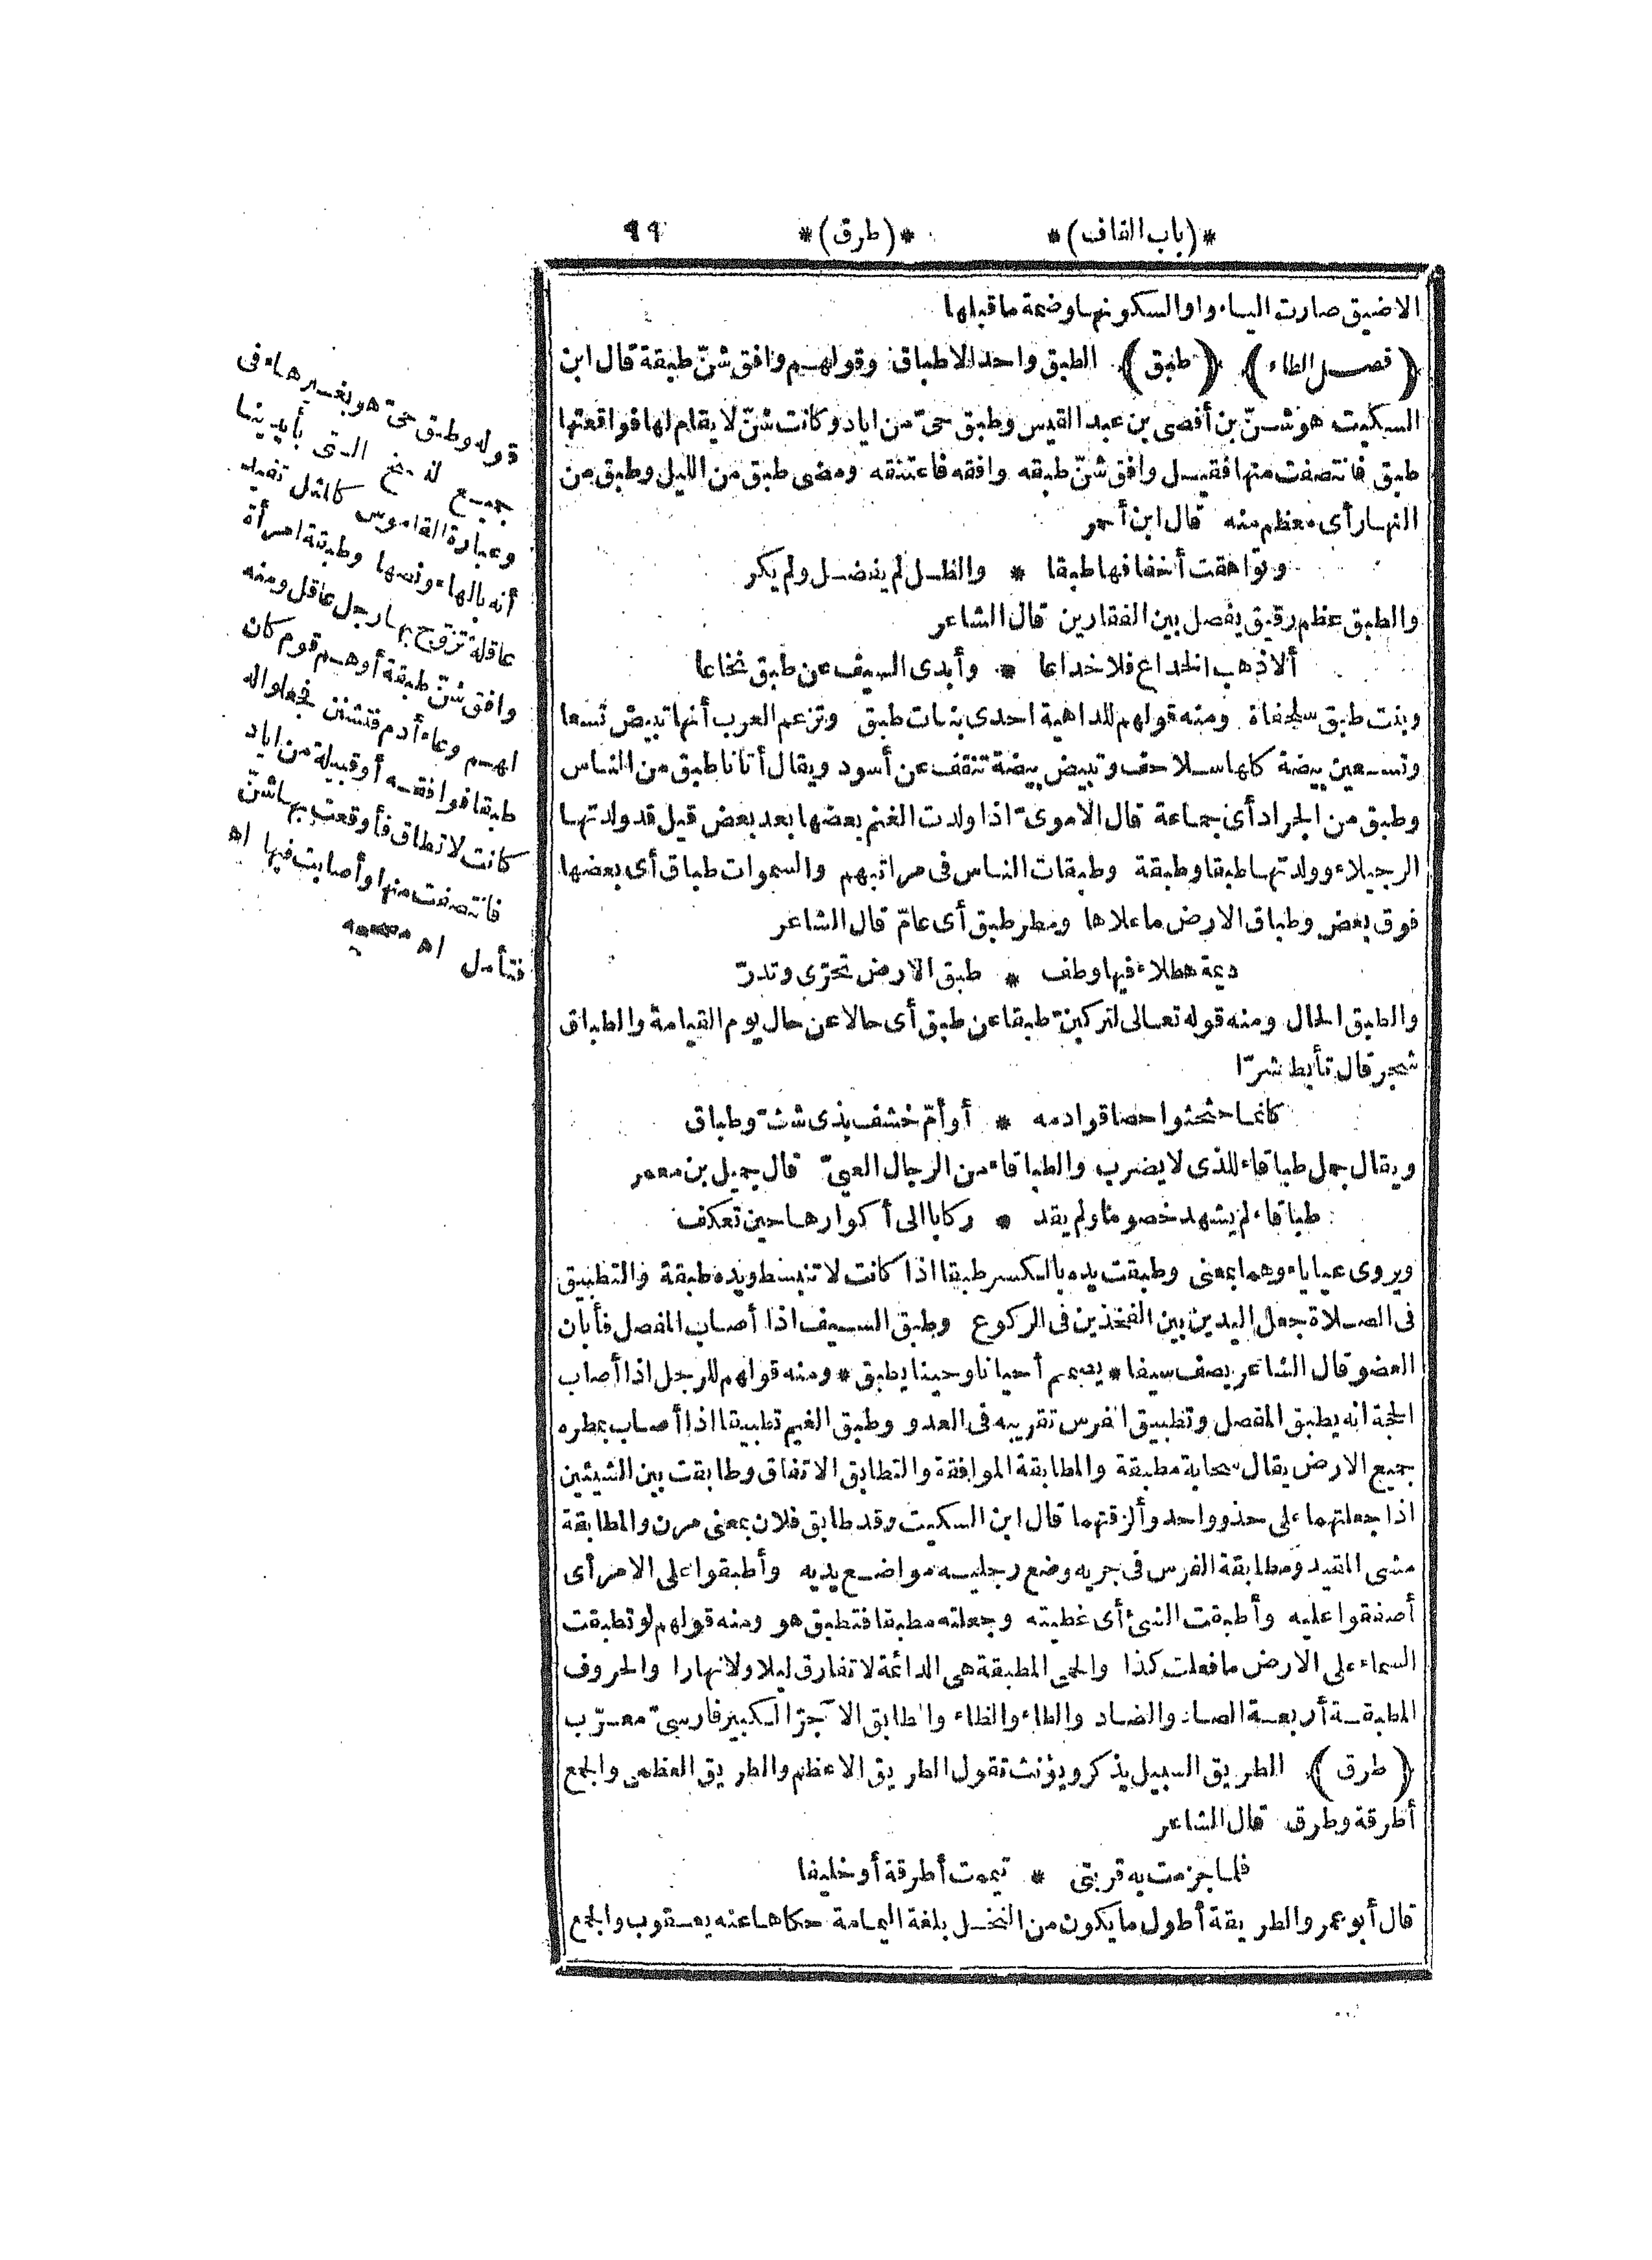 *(باب القاف)* *(طرق)* ٩٩
الاضيق صارت الياء واوا لسكونها وضمة ما قبلها
﴿فصل الطاء﴾ ﴿طبق﴾ الطبق واحد الاطباق وقولهم وافق شنّ طبقة قال ابن
السكيت هو شنّ بن أفصى بن عبد القيس وطبق حىّ من اياد وكانت شنّ لا يقام لها فواقعتها
طبق فانتصفت منها فقيل وافق شنّ طبقه وافقه فاعتنقه ومضى طبق من الليل وطبق من
النهار أى معظم منه قال ابن أحمر
وتواهقت أخفافها طبقا * والظل لم يفضل ولم يكر
والطبق عظم رقيق يفصل بين الفقارين قال الشاعر
ألا ذهب الخداع فلا خداعا * وأبدى السيف عن طبق نخاعا
وبنت طبق سلحفاة ومنه قولهم للداهية احدى بنات طبق وتزعم العرب أنها تبيض تسعا
وتسعين بيضة كلها سلاحف وتبيض بيضة تنقف عن أسود ويقال أتانا طبق من الناس
وطبق من الجراد أى جماعة قال الاموىّ اذا ولدت الغنم بعضها بعد بعض قيل قد ولدتها
الرجيلاء وولدتها طبقا وطبقة وطبقات الناس فى مراتبهم والسموات طباق أى بعضها
فوق بعض وطباق الارض ما علاها ومطر طبق أى عامّ قال الشاعر
ديمة هطلاء فيها وطف * طبق الارض تحرّى وتدرّ
والطبق الحال ومنه قوله تعالى لتركبنّ طبقا عن طبق أى حالا عن حال يوم القيامة والطباق
شجر قال تأبط شرّا
كانما حثحثوا حصا قوادمه * أو أمّ خشف بذى شثّ وطباق
ويقال جمل طباقاء للذى لا يضرب والطباقاء من الرجال العيىّ قال جميل بن معمر
طباقاء لم يشهد خصوما ولم يقد * ركابا الى أكوارها حين تعكف
ويروى عياياء وهما بمعنى وطبقت يده بالكسر طبقا اذا كانت لا تنبسط ويده طبقة والتطبيق
فى الصلاة جعل اليدين بين الفخذين فى الركوع وطبق السيف اذا أصاب المفصل فأبان
العضو قال الشاعر يصف سيفا * يصمم أحيانا وحينا يطبق * ومنه قولهم للرجل اذا أصاب
الحجة انه يطبق المفصل وتطبيق الفرس تقريبه فى العدو وطبق الغيم تطبيقا اذا أصاب بمطره
جميع الارض يقال سحابة مطبقة والمطابقة الموافقة والتطابق الاتفاق وطابقت بين الشيئين
اذا جعلتهما على حذو واحد وألزقتهما قال ابن السكيت وقد طابق فلان بمعنى مرن والمطابقة
مشى المقيد ومطابقة الفرس فى جريه وضع رجليه مواضع يديه وأطبقوا على الامر أى
أصفقوا عليه وأطبقت الشئ أى غطيته وجعلته مطبقا فتطبق هو ومنه قولهم لو تطبقت
السماء على الارض ما فعلت كذا والحمى المطبقة هى الدائمة لا تفارق ليلا ولا نهارا والحروف
المطبقة أربعة الصاد والضاد والطاء والظاء والطابق الآجرّ الكبير فارسىّ معرّب
﴿طرق﴾ الطريق السبيل يذكر ويؤنث تقول الطريق الاعظم والطريق العظمى والجمع
أطرقة وطرق قال الشاعر
فلما جزمت به قربتى * تيممت أطرقة أو خليفا
قال أبو عمرو الطريقة أطول ما يكون من النخل بلغة اليمامة حكاها عنه يعقوب والجمع
قوله وطبق حىّ هو بغير هاء فى
جميع النسخ التى بأيدينا
وعبارة القاموس كالمثل تفيد
أنه بالهاء ونصها وطبقة امرأة
عاقلة تزوّج بها رجل عاقل ومنه
وافق شنّ طبقة أو هم قوم كان
لهم وعاء أدم فتشنن فجعلوا له
طبقا فوافقه أو قبيلة من اياد
كانت لا تطاق فأوقعت بها شنّ
فانتصفت منها وأصابت فيها اه
فتأمل اه مصححه